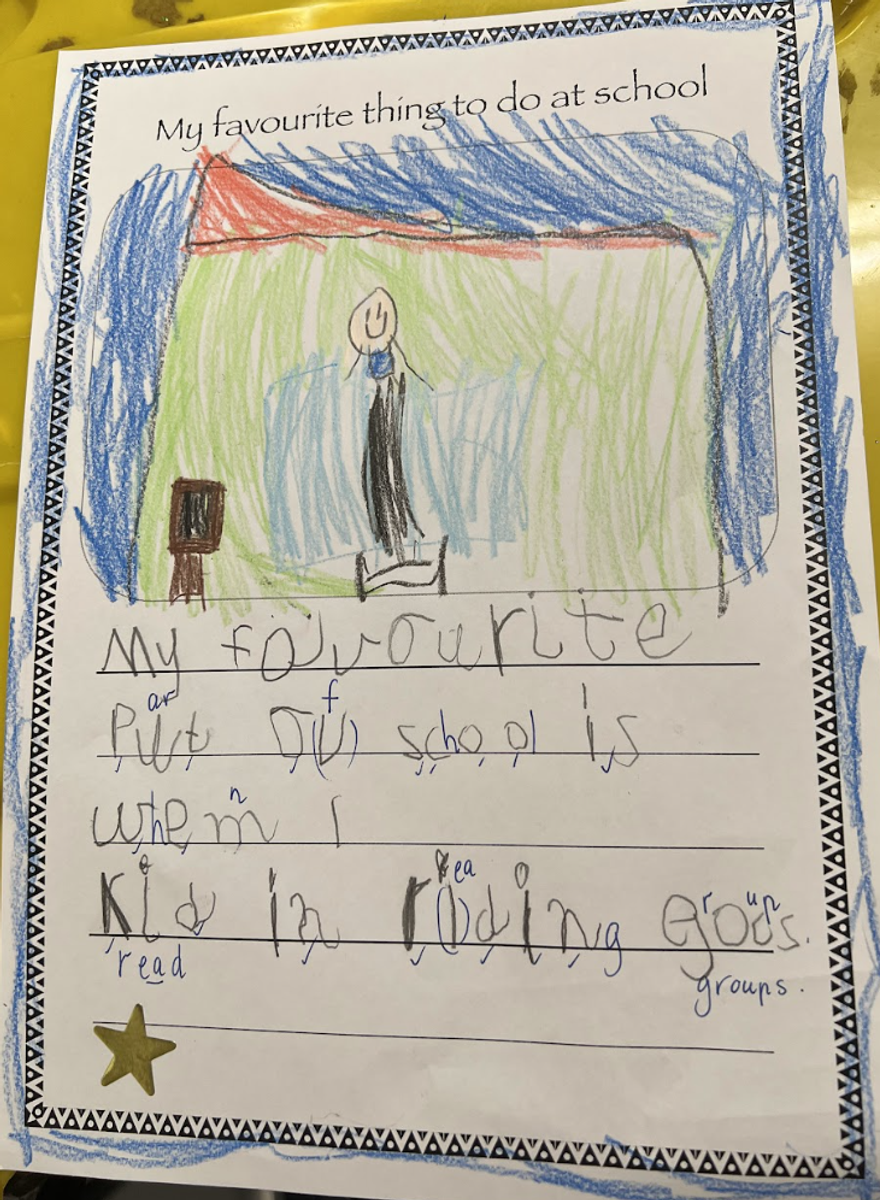 My favourite thing to do at school
My favourite
ar f
Put ou school is
n
when I
ea
Kid in riding gods.
read
groups.